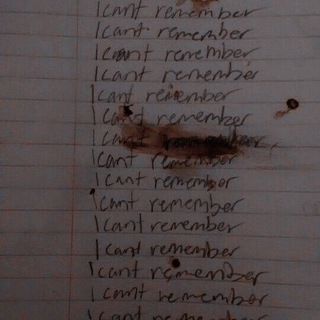 I cant remember
I cant remember
I cant remember
I cant remember
I cant remember
I cant remember
I cant remember
I cant remember
I cant remember
I cant remember
I cant remember
I cant remember
I cant remember
I cant remember
I cant remember